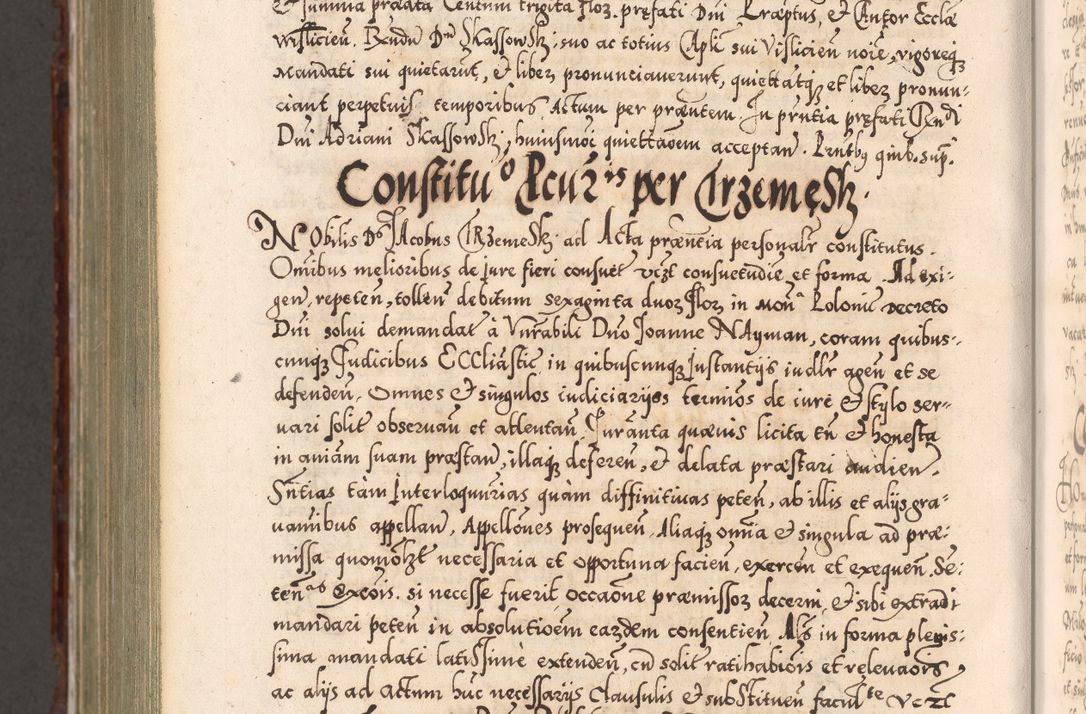 et summa prædta Centum trigita Floz. prefati Dni Præptus, et Cantor Ecclæ
Vislicien. Rndu Dno Skassowsk, suo ac totius Capli sui Vislicien noie, vigoreqz
Mandati sui quietarut, et liber pronunciaverunt, quiettatqz et liber pronun-
ciant perpetuis temporibus. Actum per præntem. In pntia prefati Rndi
Dni Adriani Skassowsk, huiusmoi quiettaoem acceptan. Prntbg quib. sup.
Constituo Pcuris per Trzemesk.
Nobilis Ds Jacobus Trzemesk. ad Acta præntia personalr constitutus.
Omibus melioribus de jure fieri consuet vezt consuetudie et forma. Ad exi-
gen, repeten, tollen debitum sexaginta duoz Floz in Mona Polonie Decreto
Dni solui demandat à Vnrabili Dno Joanne Nayman, coram quibus-
cunqz Judicibus Eccliastic in quibuscunqz Instantijs iudlr agen et se
defenden, Omnes et singulos iudiciarijos termios de iure et stylo ser-
uari solit obseruan et attentan. Juranta quæuis licita tn et honesta
in aniam suam præstan, illaqz deferen, et delata præstari audien.
Sntias tàm Interloqurias quàm diffinitiuas peten, ab illis et alijs gra-
uamibus appellan. Appellones prosequen. Aliaqz omia et singula ad præ-
missa quomolzt necessaria et opportuna facien, exercen et exequen. Se-
tenas Exeois. si necesse fuerit occaone præmissoz decerni, et sibi extradi
mandari peten in absolutioem eazdem consentien Als in forma plenis-
sima, mandati latissime extenden, cu solit ratihabiois et releuaois,
ac alijs ad actum huc necessarijs Clausulis et substituen faculte Vezt